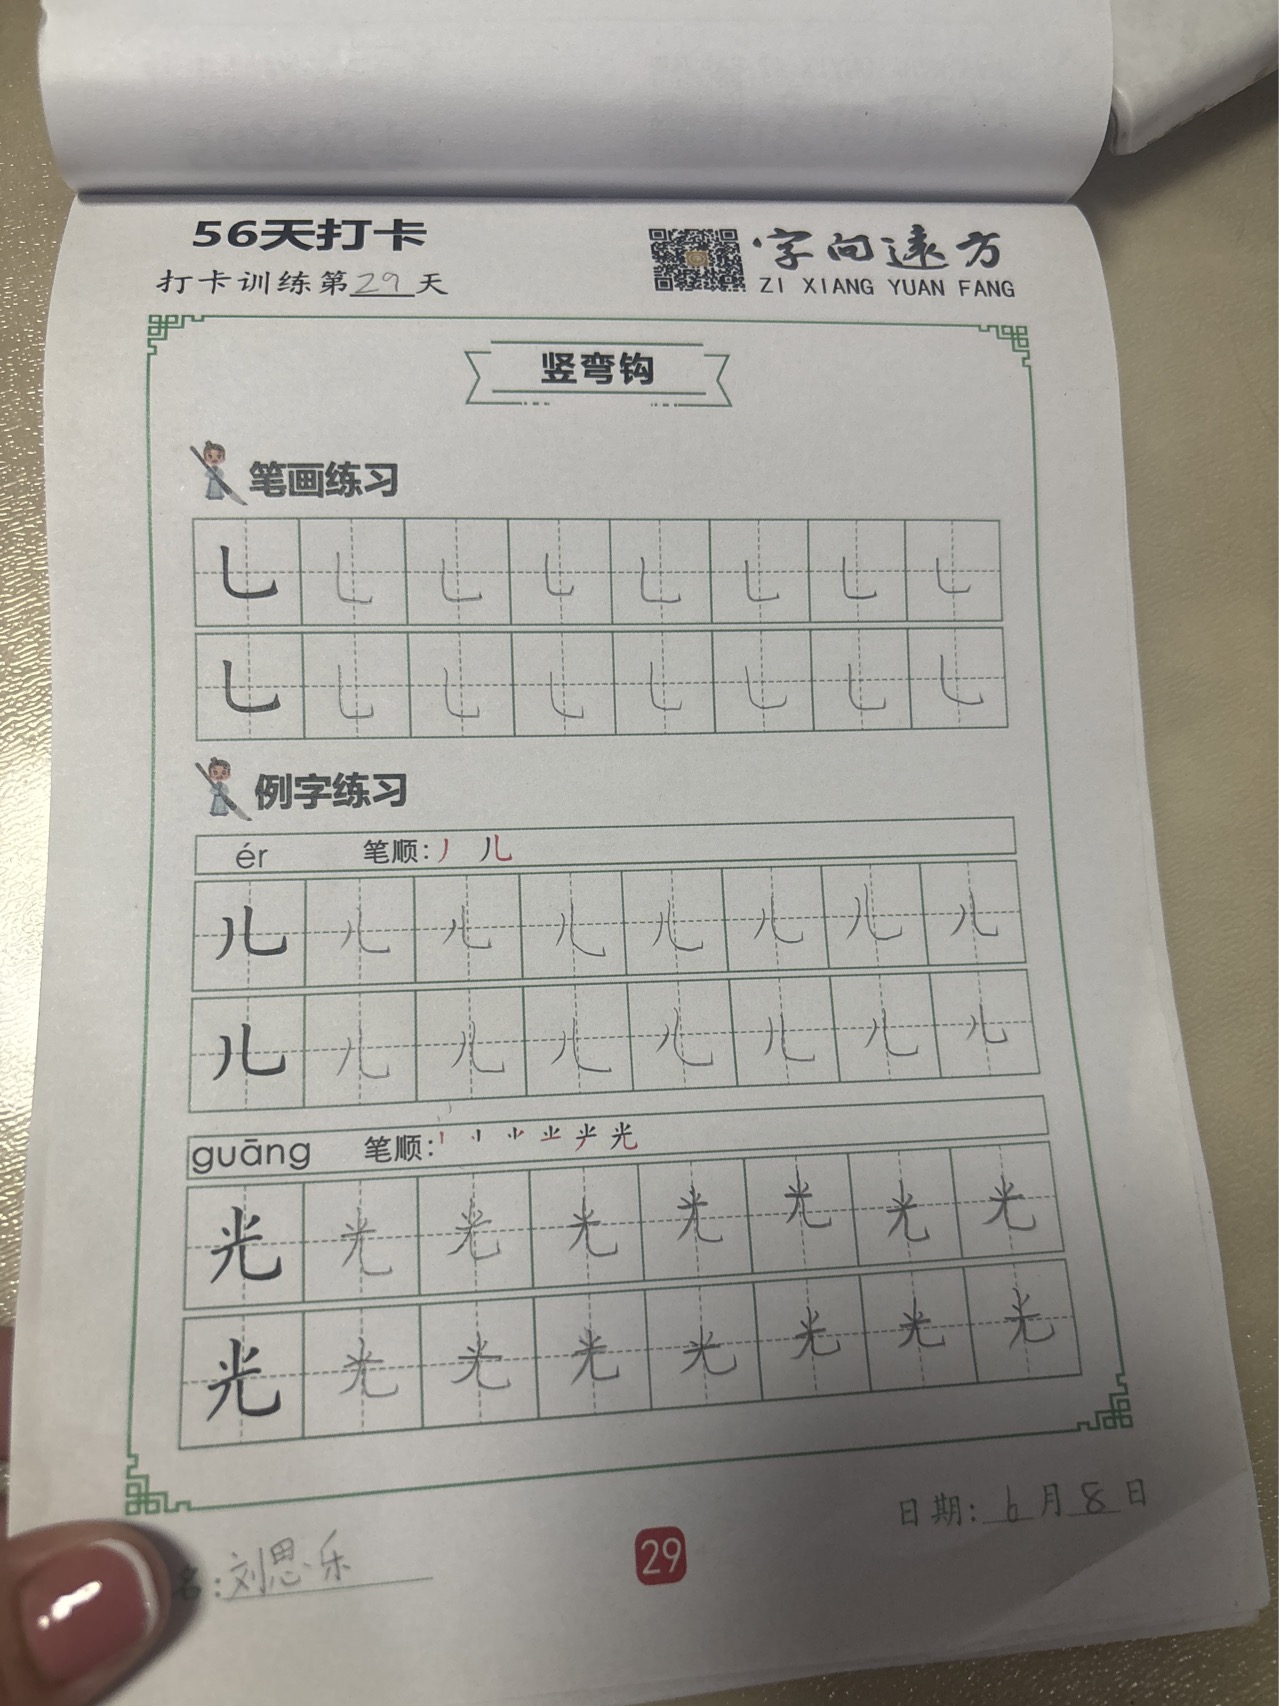 56天打卡
字向远方
打卡训练第29天
ZI XIANG YUAN FANG
竖弯钩
笔画练习
乚 乚 乚 乚 乚 乚 乚 乚
乚 乚 乚 乚 乚 乚 乚 乚
例字练习
ér 笔顺: 丿 儿
儿 儿 儿 儿 儿 儿 儿 儿
儿 儿 儿 儿 儿 儿 儿 儿
guāng 笔顺: 光
光 光 光 光 光 光 光 光
光 光 光 光 光 光 光 光
日期: 6月8日
名: 刘思乐
29